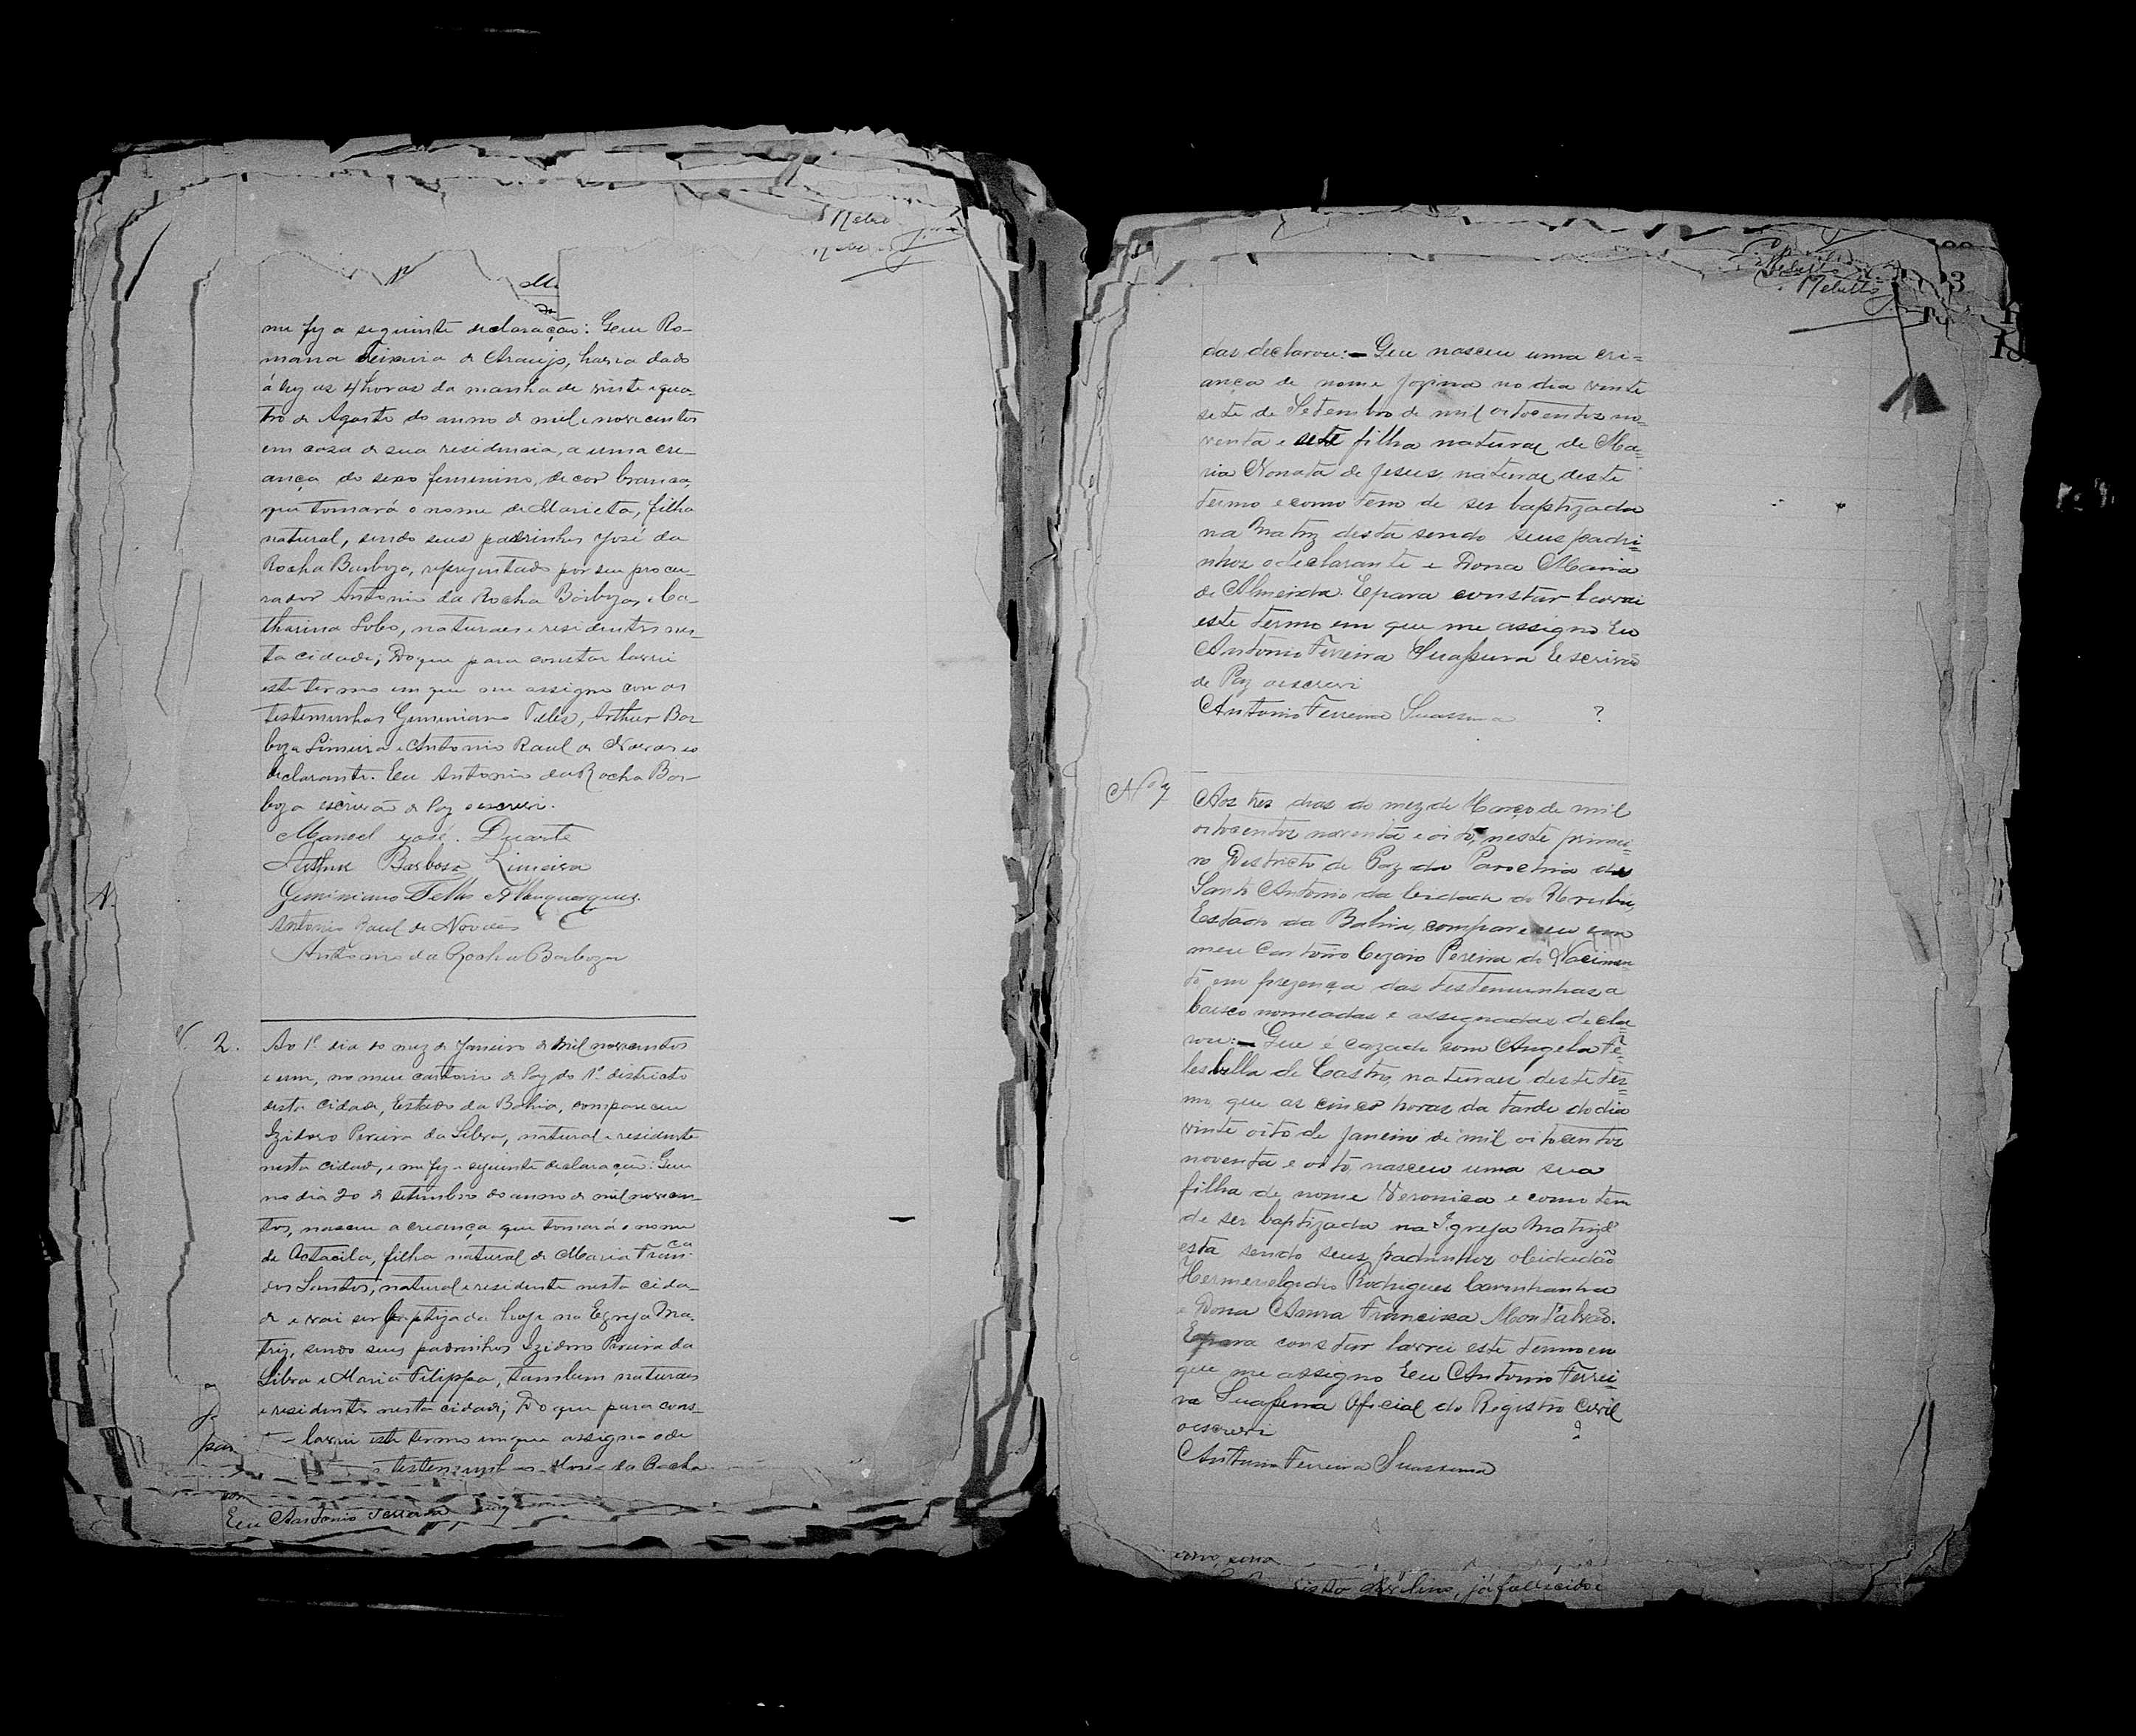 me fez a seguinte declaração: Que Ro-
mana Teixeira de Araujo, havia dado
á luz as 4 horas da manhã de vinte e qua-
tro de Agosto do anno de mil e novecentos
em casa de sua residencia, a uma cre-
ança do sexo feminino, de cor branca,
que tomará o nome de Marieta, filha
natural, sendo seus padrinhos José da
Rocha Barboza, reprezentado por seu procu-
rador Antonio da Rocha Barboza, e Ca-
tharina Lobo, naturaes e residentes nes-
ta cidade; Do que para constar lavrei
este termo em que me assigno com as
testemunhas Geminiano Telles, Arthur Bar-
boza Limeira e Antonio Raul de Novaes e o
declarante. Eu Antonio da Rocha Bar-
boza escrivão de Paz o escrevi.
Manoel José Duarte
Arthur Barbosa Limeira
Geminiano Telles Albuquerque
Antonio Raul de Novaes
Antonio da Rocha Barboza
N. 2. Ao 1º dia do mez de Janeiro de mil novecentos
e um, no meu cartorio de Paz do 1º districto
desta cidade, Estado da Bahia, compareceu
Izidoro Pereira da Silva, natural e residente
nesta cidade, e me fez a seguinte declaração: Que
no dia 20 de setembro do anno de mil novecen-
tos, nasceu a creança que tomará o nome
de Octacila, filha natural de Maria Franca
dos Santos, natural e residente nesta cida-
de e vai ser baptizada hoje na Egreja Ma-
triz, sendo seus padrinhos Izidoro Pereira da
Silva e Maria Filippa, tambem naturaes
e residentes nesta cidade; Do que para cons-
lavrei este termo em que assigna o de
testemunhas da Rocha
Eu Antonio Ferreira
das declarou:- Que nasceu uma cri=
ança de nome Jozina no dia vinte
sete de Setembro de mil oitocentos no=
venta e sete filha natural de Ma=
ria Nonata de Jesus, natural deste
termo e como tem de ser baptizada
na Matriz desta sendo seus padri=
nhos o declarante e Dona Maria
de Almeida. E para constar lavrei
este termo em que me assigno Eu
Antonio Ferreira Suassuna Escrivão
de Paz o escrevi
Antonio Ferreira Suassuna ?
Nº 7 Aos tres dias do mez de Março de mil
oitocentos noventa e oito, neste primei=
ro Districto de Paz da Parochia de
Santo Antonio da Cidade do Urubú,
Estado da Bahia, compareceu em
meu Cartorio Cezario Pereira do Nacimen
to em prezença das testemunhas a
baixo nomeadas e assignadas decla
rou:- Que é cazado com Angela Te=
les de Castro, naturaes deste ter=
mo, que as cinco horas da tarde do dia
vinte oito de Janeiro de mil oitocentos
noventa e oito, nasceu uma sua
filha de nome Veronica e como tem
de ser baptizada na Igreja Matriz d'
esta sendo seus padrinhos o Cidadão
Hermenelgidio Rodrigues Carinhanha
e Dona Anna Francisca Mont'alvão.
E para constar lavrei este termo em
que me assigno Eu Antonio Ferrei=
ra Suassuna Oficial do Registro Civil
o escrevi ?
Antonio Ferreira Suassuna
já fallecido e